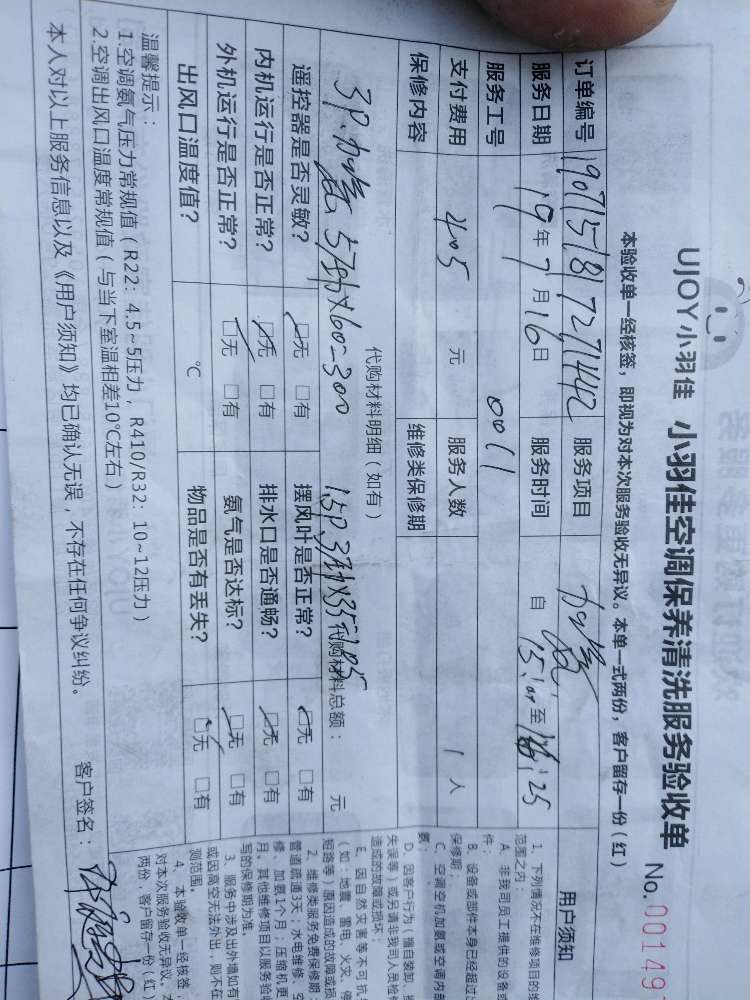 UJOY小羽佳 小羽佳空调保养清洗服务验收单
No.00149
本验收单一经核签，即视为对本次服务验收无异议。本单一式两份，客户留存一份(红)
订单编号 1907151817271442 服务项目 加氨
服务日期 19年7月16日 服务时间 自15:05至16:25
服务工号 0011
支付费用 405 元 服务人数 1人
保修内容 维修类保修期
代购材料明细(如有)
3P.加氨 5个压力×60=300 1.5P 3个压力×35=105 代购材料总额： 元
遥控器是否灵敏? 无 有 摆风叶是否正常? 无 有
内机运行是否正常? 无 有 排水口是否通畅? 无 有
外机运行是否正常? 无 有 氨气是否达标? 无 有
出风口温度值? ℃ 物品是否有丢失? 无 有
温馨提示：
1.空调氨气压力常规值(R22：4.5~5压力，R410/R32：10~12压力)
2.空调出风口温度常规值(与当下室温相差10℃左右)
本人对以上服务信息以及《用户须知》均已确认无误，不存在任何争议纠纷。 客户签名：
用户须知
1、下列情况不在维修项目的
范围之内：
A、非我司员工提供的设备或
件；
B、设备或部件本身已经超过
保修期；
C、空调空机加氨或空调内部
氨；
D、因客户行为(擅自装卸、
失误等)或另请非我司人员检修
造成的故障或损坏；
E、因自然灾害等不可抗
(如：地震、雷电、火灾、停
短路等)原因造成的故障或损
2、维修类服务免费保修期
管道疏通3天；水电维修、空
修、加氨1个月；压缩机更
月。其他维修项目以服务验收
写的保修期为准。
3、服务中涉及出外墙如有
或因高空无法外出，则不在
测范围。
4、本验收单一经核签，
对本次服务验收无异议。本
两份，客户留存一份(红)